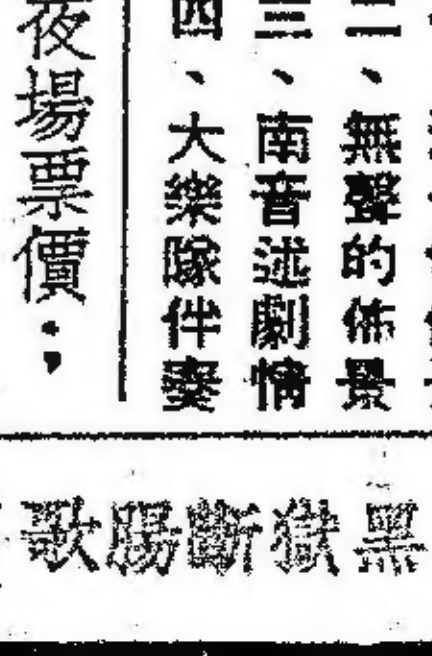 二、無聲的佈景
三、南音述劇情
四、大樂隊伴奏
夜場票價：
黑獄斷腸歌